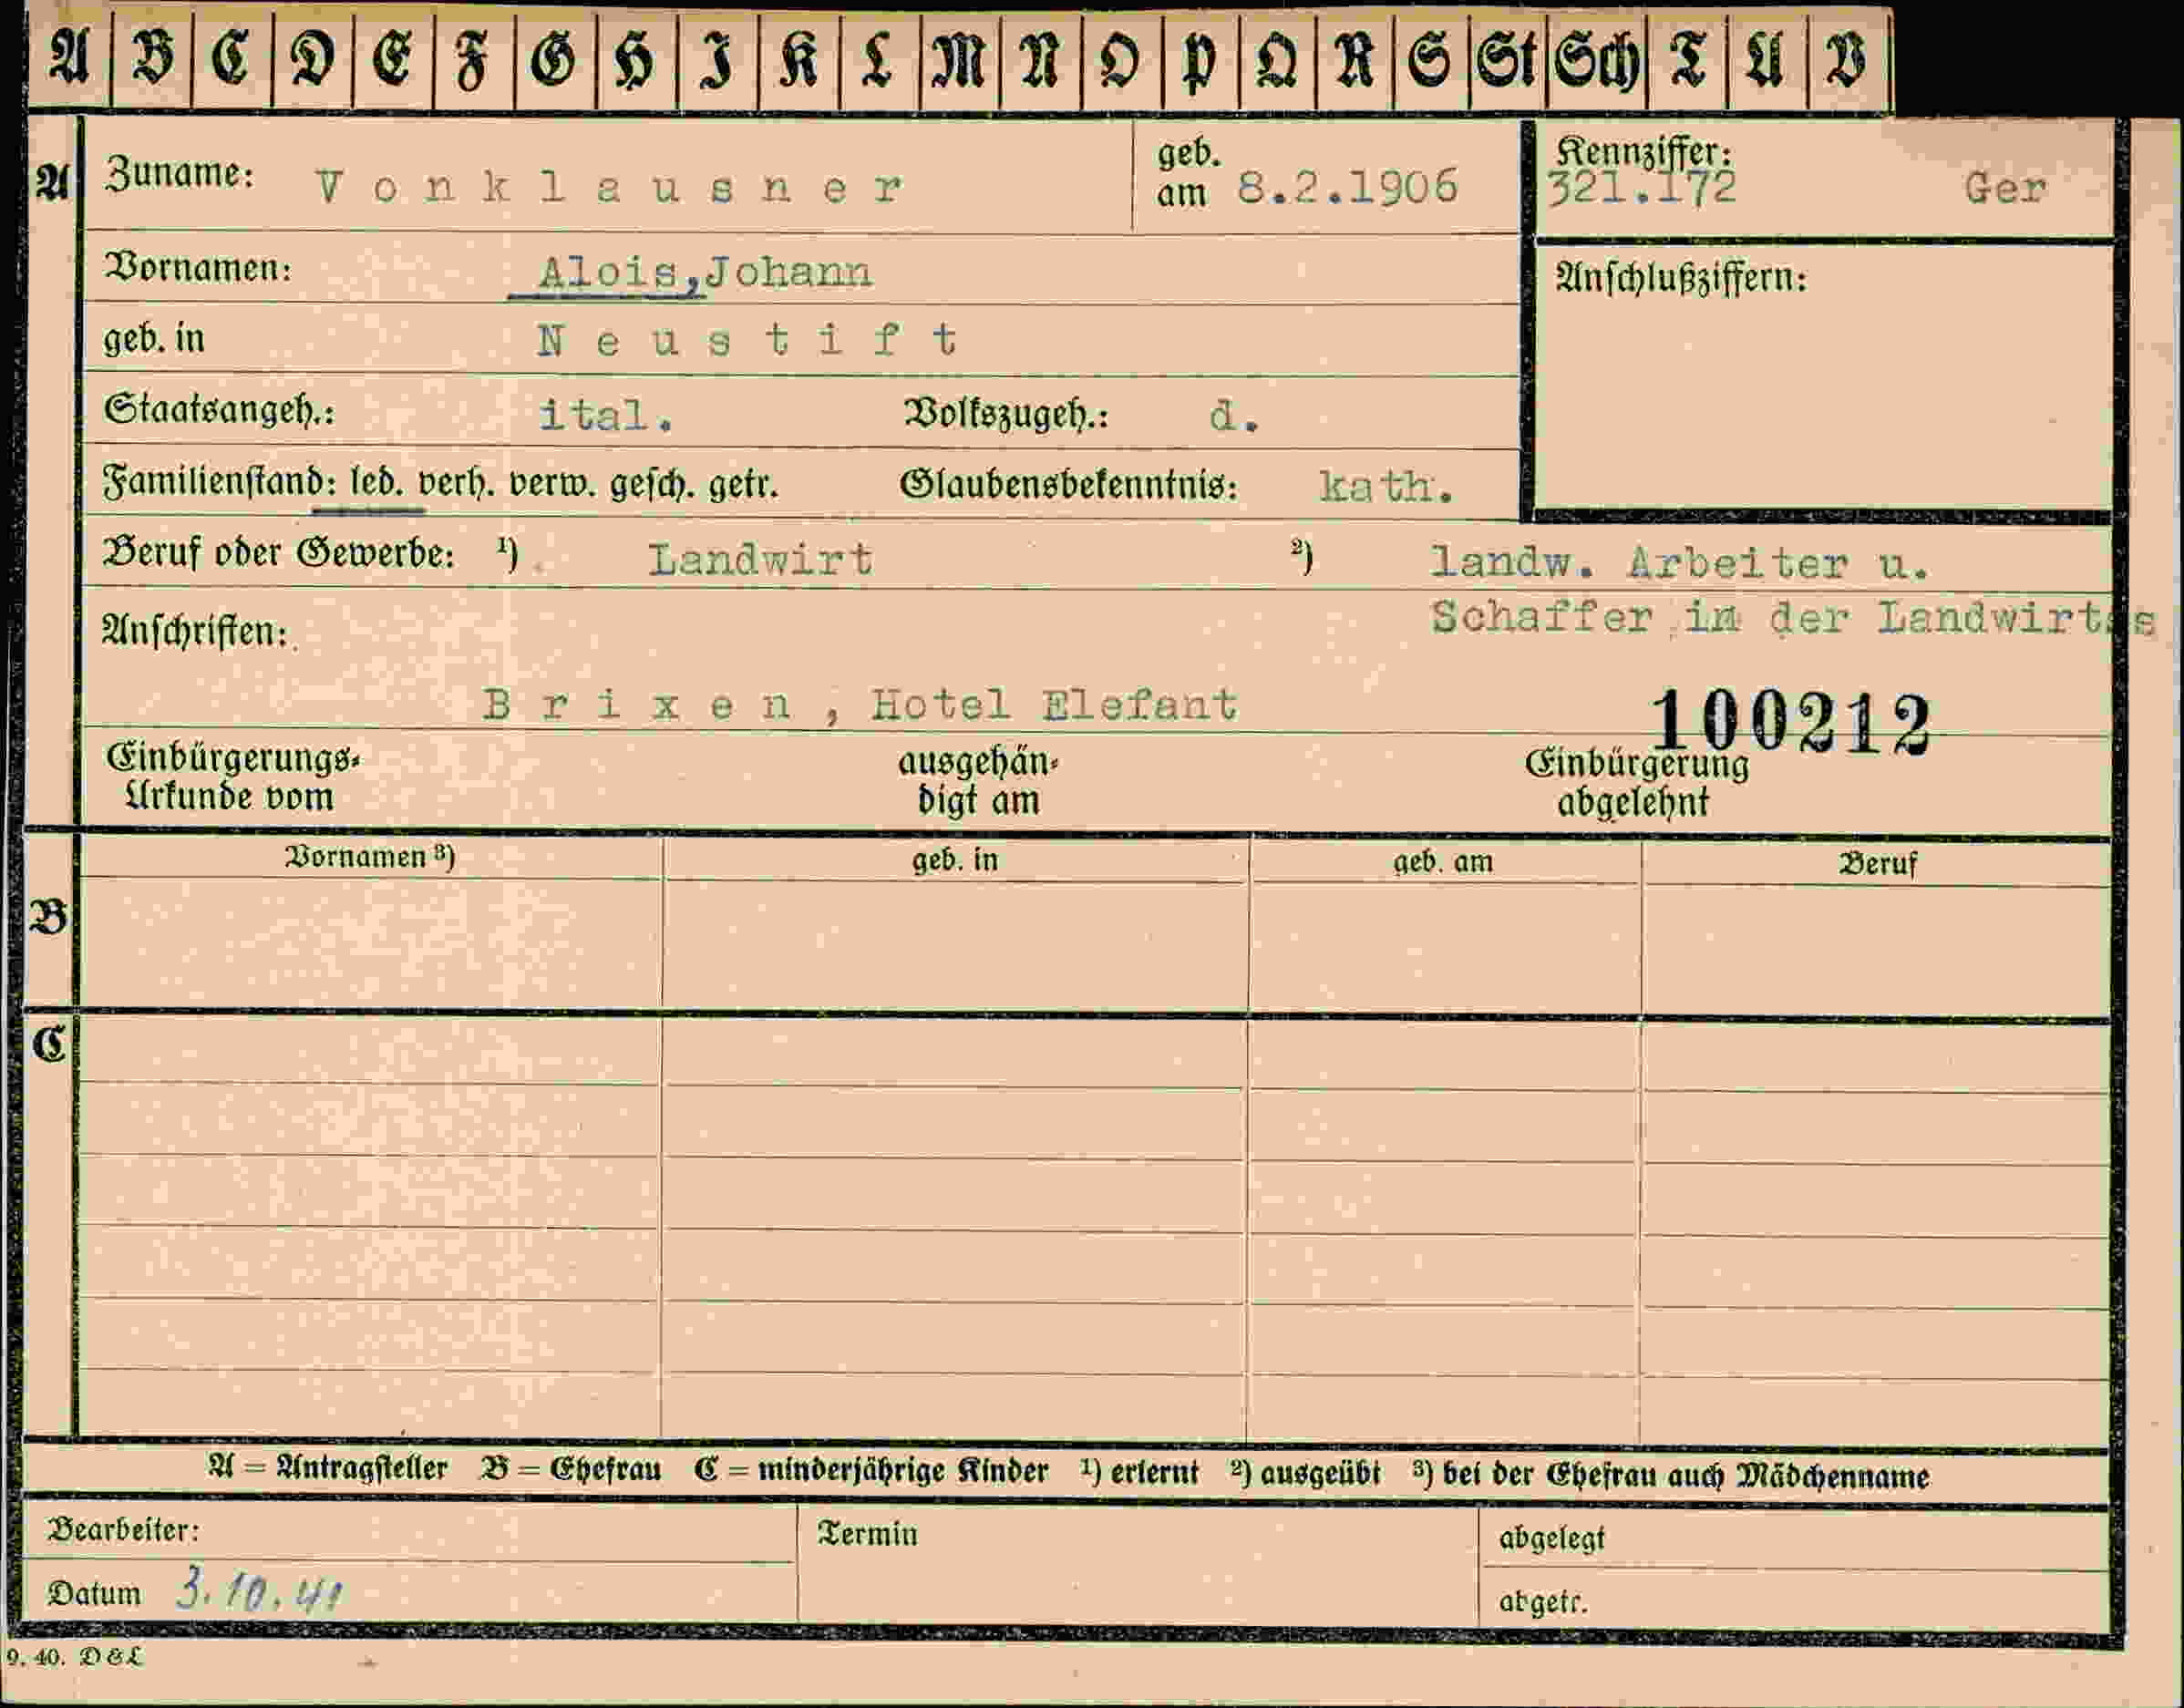 A B C D E F G H I K L M N O P Q R S St Sch T U V
A Zuname: Vonklausner geb. am 8.2.1906 Kennziffer: 321.172 Ger
Vornamen: Alois,Johann Anschlußziffern:
geb. in Neustift
Staatsangeh.: ital. Volkszugeh.: d.
Familienstand: led. verh. verw. gesch. getr. Glaubensbekenntnis: kath.
Beruf oder Gewerbe: ¹) Landwirt ²) landw. Arbeiter u.
Anschriften: Schaffer in der Landwirts
Brixen, Hotel Elefant 100212
Einbürgerungs- ausgehän- Einbürgerung
Urkunde vom digt am abgelehnt
Vornamen ³) geb. in geb. am Beruf
B
C
A = Antragsteller B = Ehefrau C = minderjährige Kinder ¹) erlernt ²) ausgeübt ³) bei der Ehefrau auch Mädchenname
Bearbeiter: Termin abgelegt
Datum 3.10.41 abgetr.
9. 40. D & L